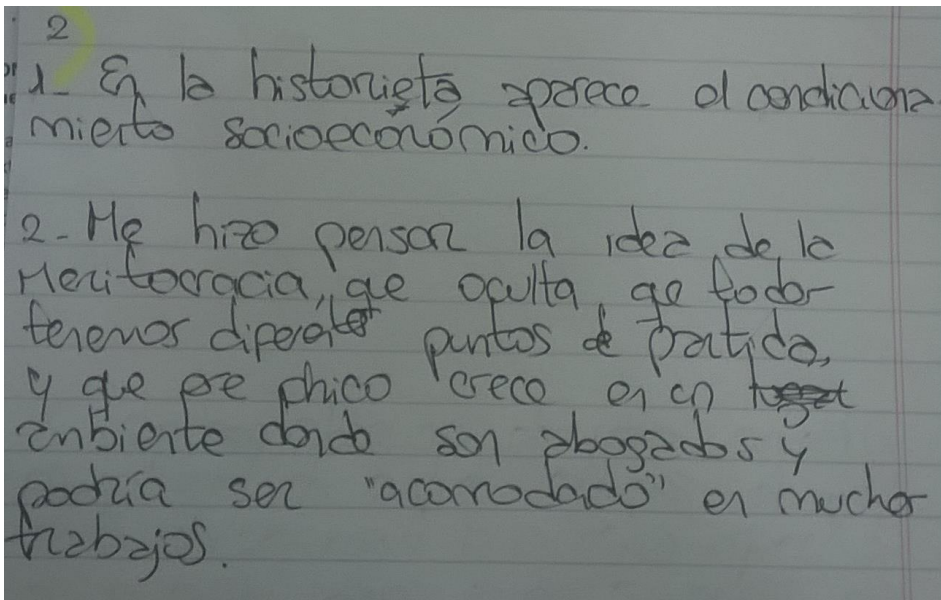 2
1- En la historieta aparece el condiciona
miento socioeconómico.
2- Me hizo pensar la idea de la
Meritocracia, que oculta que todos
tenemos diferentes puntos de partida,
y que ese chico crece en un
ambiente donde son abogados y
podría ser "acomodado" en muchos
trabajos.